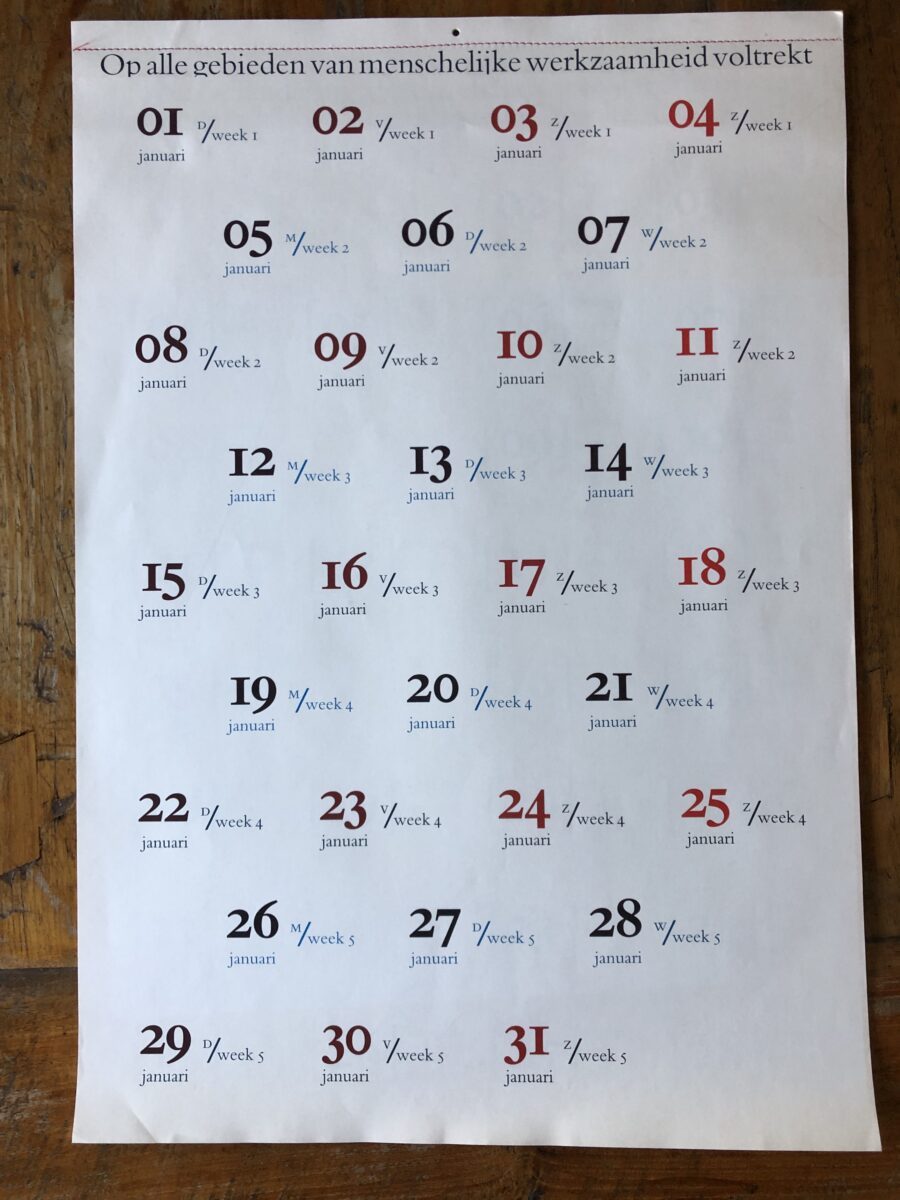 Op alle gebieden van menschelijke werkzaamheid voltrekt
01 D/week 1 02 V/week 1 03 Z/week 1 04 Z/week 1
januari januari januari januari
05 M/week 2 06 D/week 2 07 W/week 2
januari januari januari
08 D/week 2 09 V/week 2 10 Z/week 2 11 Z/week 2
januari januari januari januari
12 M/week 3 13 D/week 3 14 W/week 3
januari januari januari
15 D/week 3 16 V/week 3 17 Z/week 3 18 Z/week 3
januari januari januari januari
19 M/week 4 20 D/week 4 21 W/week 4
januari januari januari
22 D/week 4 23 V/week 4 24 Z/week 4 25 Z/week 4
januari januari januari januari
26 M/week 5 27 D/week 5 28 W/week 5
januari januari januari
29 D/week 5 30 V/week 5 31 Z/week 5
januari januari januari